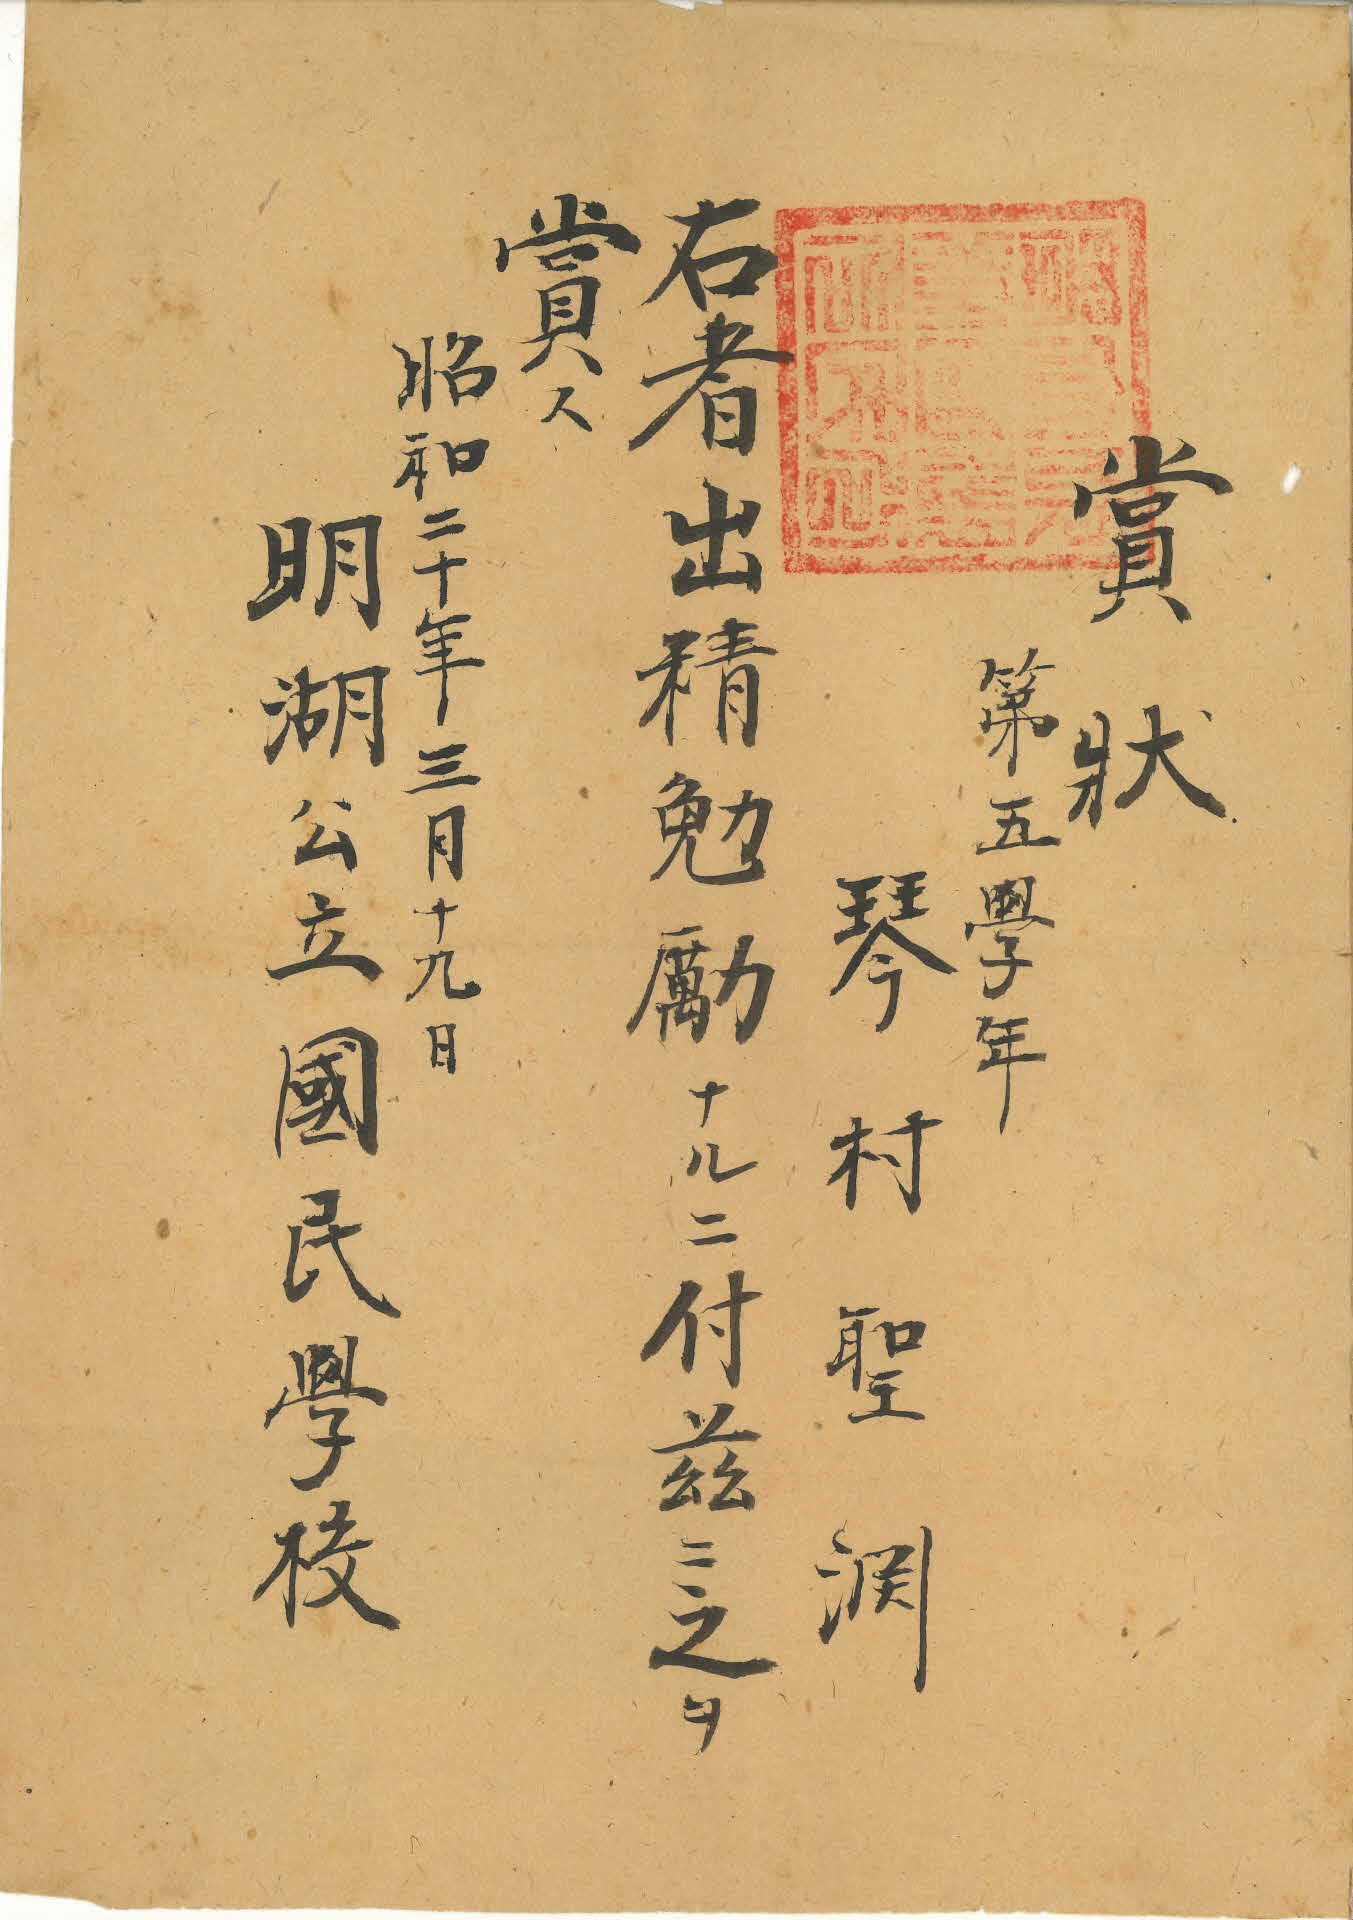 賞狀
第五學年
琴村聖渕
右者出精勉勵ナルニ付茲ニ之ヲ
賞ス
昭和二十年三月十九日
明湖公立國民學校